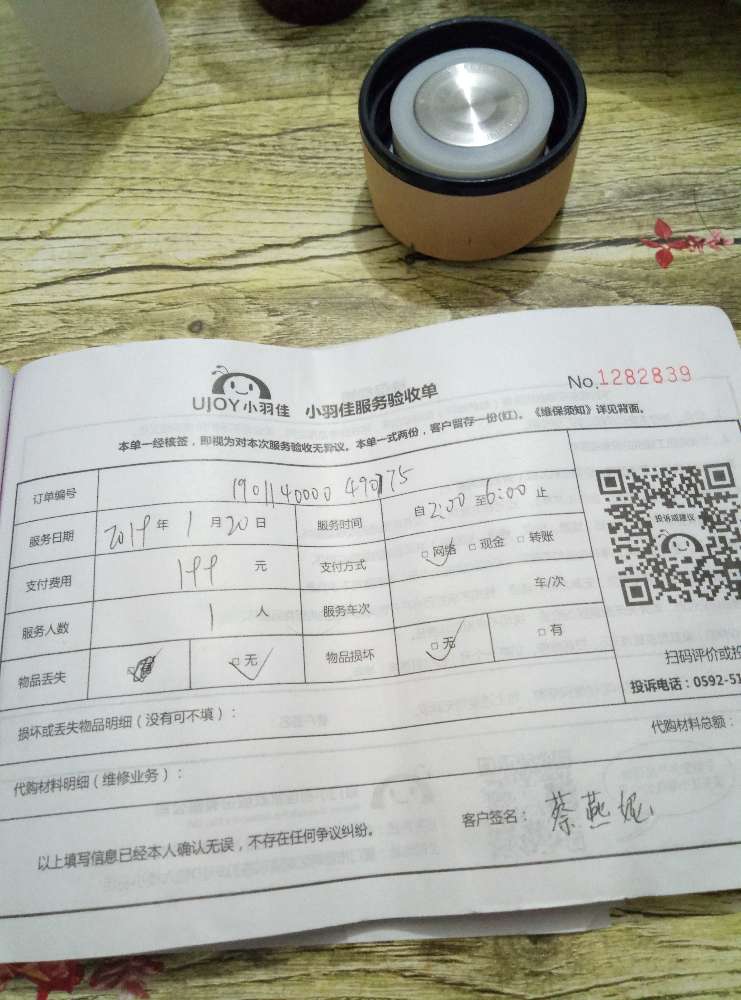 No.1282839
UJOY小羽佳 小羽佳服务验收单
本单一经核签，即视为对本次服务验收无异议。本单一式两份，客户留存一份(红)。《维保须知》详见背面。
订单编号 1901140000490175
服务日期 2019年1月20日 服务时间 自2:00至6:00止
投诉或建议
支付费用 199元 支付方式 □网络 □现金 □转账
服务人数 1人 服务车次 车/次
物品丢失 □无 物品损坏 □无 □有
扫码评价或投
投诉电话：0592-51
损坏或丢失物品明细（没有可不填）：
代购材料明细（维修业务）： 代购材料总额：
以上填写信息已经本人确认无误，不存在任何争议纠纷。 客户签名：蔡燕妮